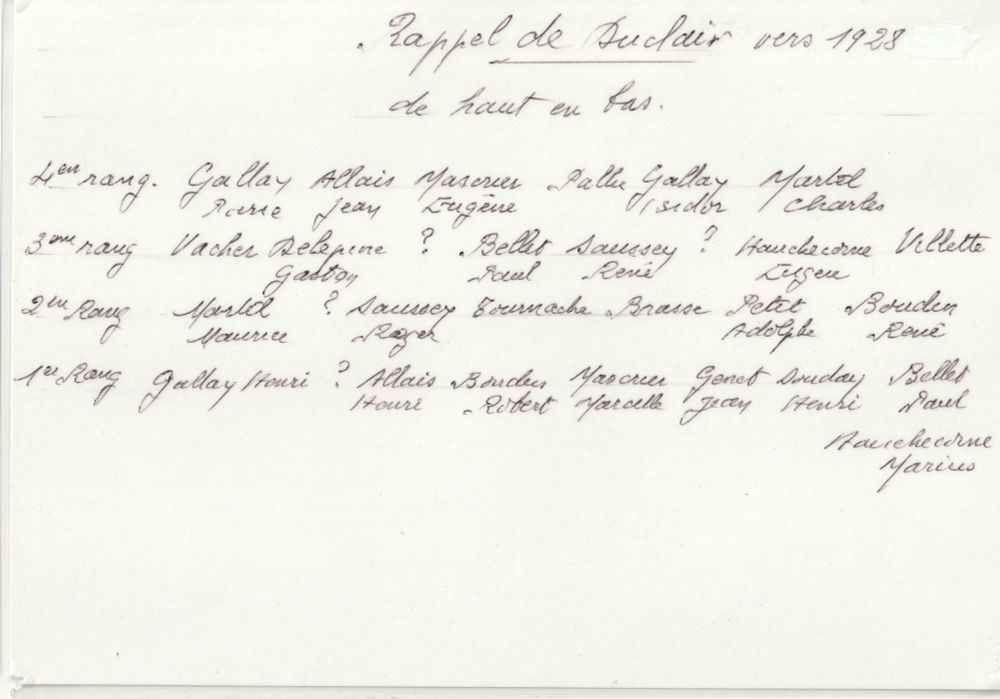 Rappel de Duclair vers 1928
de haut en bas.
4em rang. Gallay Allais Mascrier Pallu Gallay Martel
Pierre Jean Eugène Isidor Charles
3eme rang Vacher Delepine ? Bellet Saussey ? Hauchecorne Villette
Gaston Paul René Eugen
2em Rang Martel ? Saussey Tournache Brasse Petit Boudin
Maurice Roger Adolphe René
1er Rang Gallay Henri ? Allais Boudin Mascrier Genet Souday Bellet
Henri Robert Marcelle Jean Henri Paul
Hauchecorne
Marius